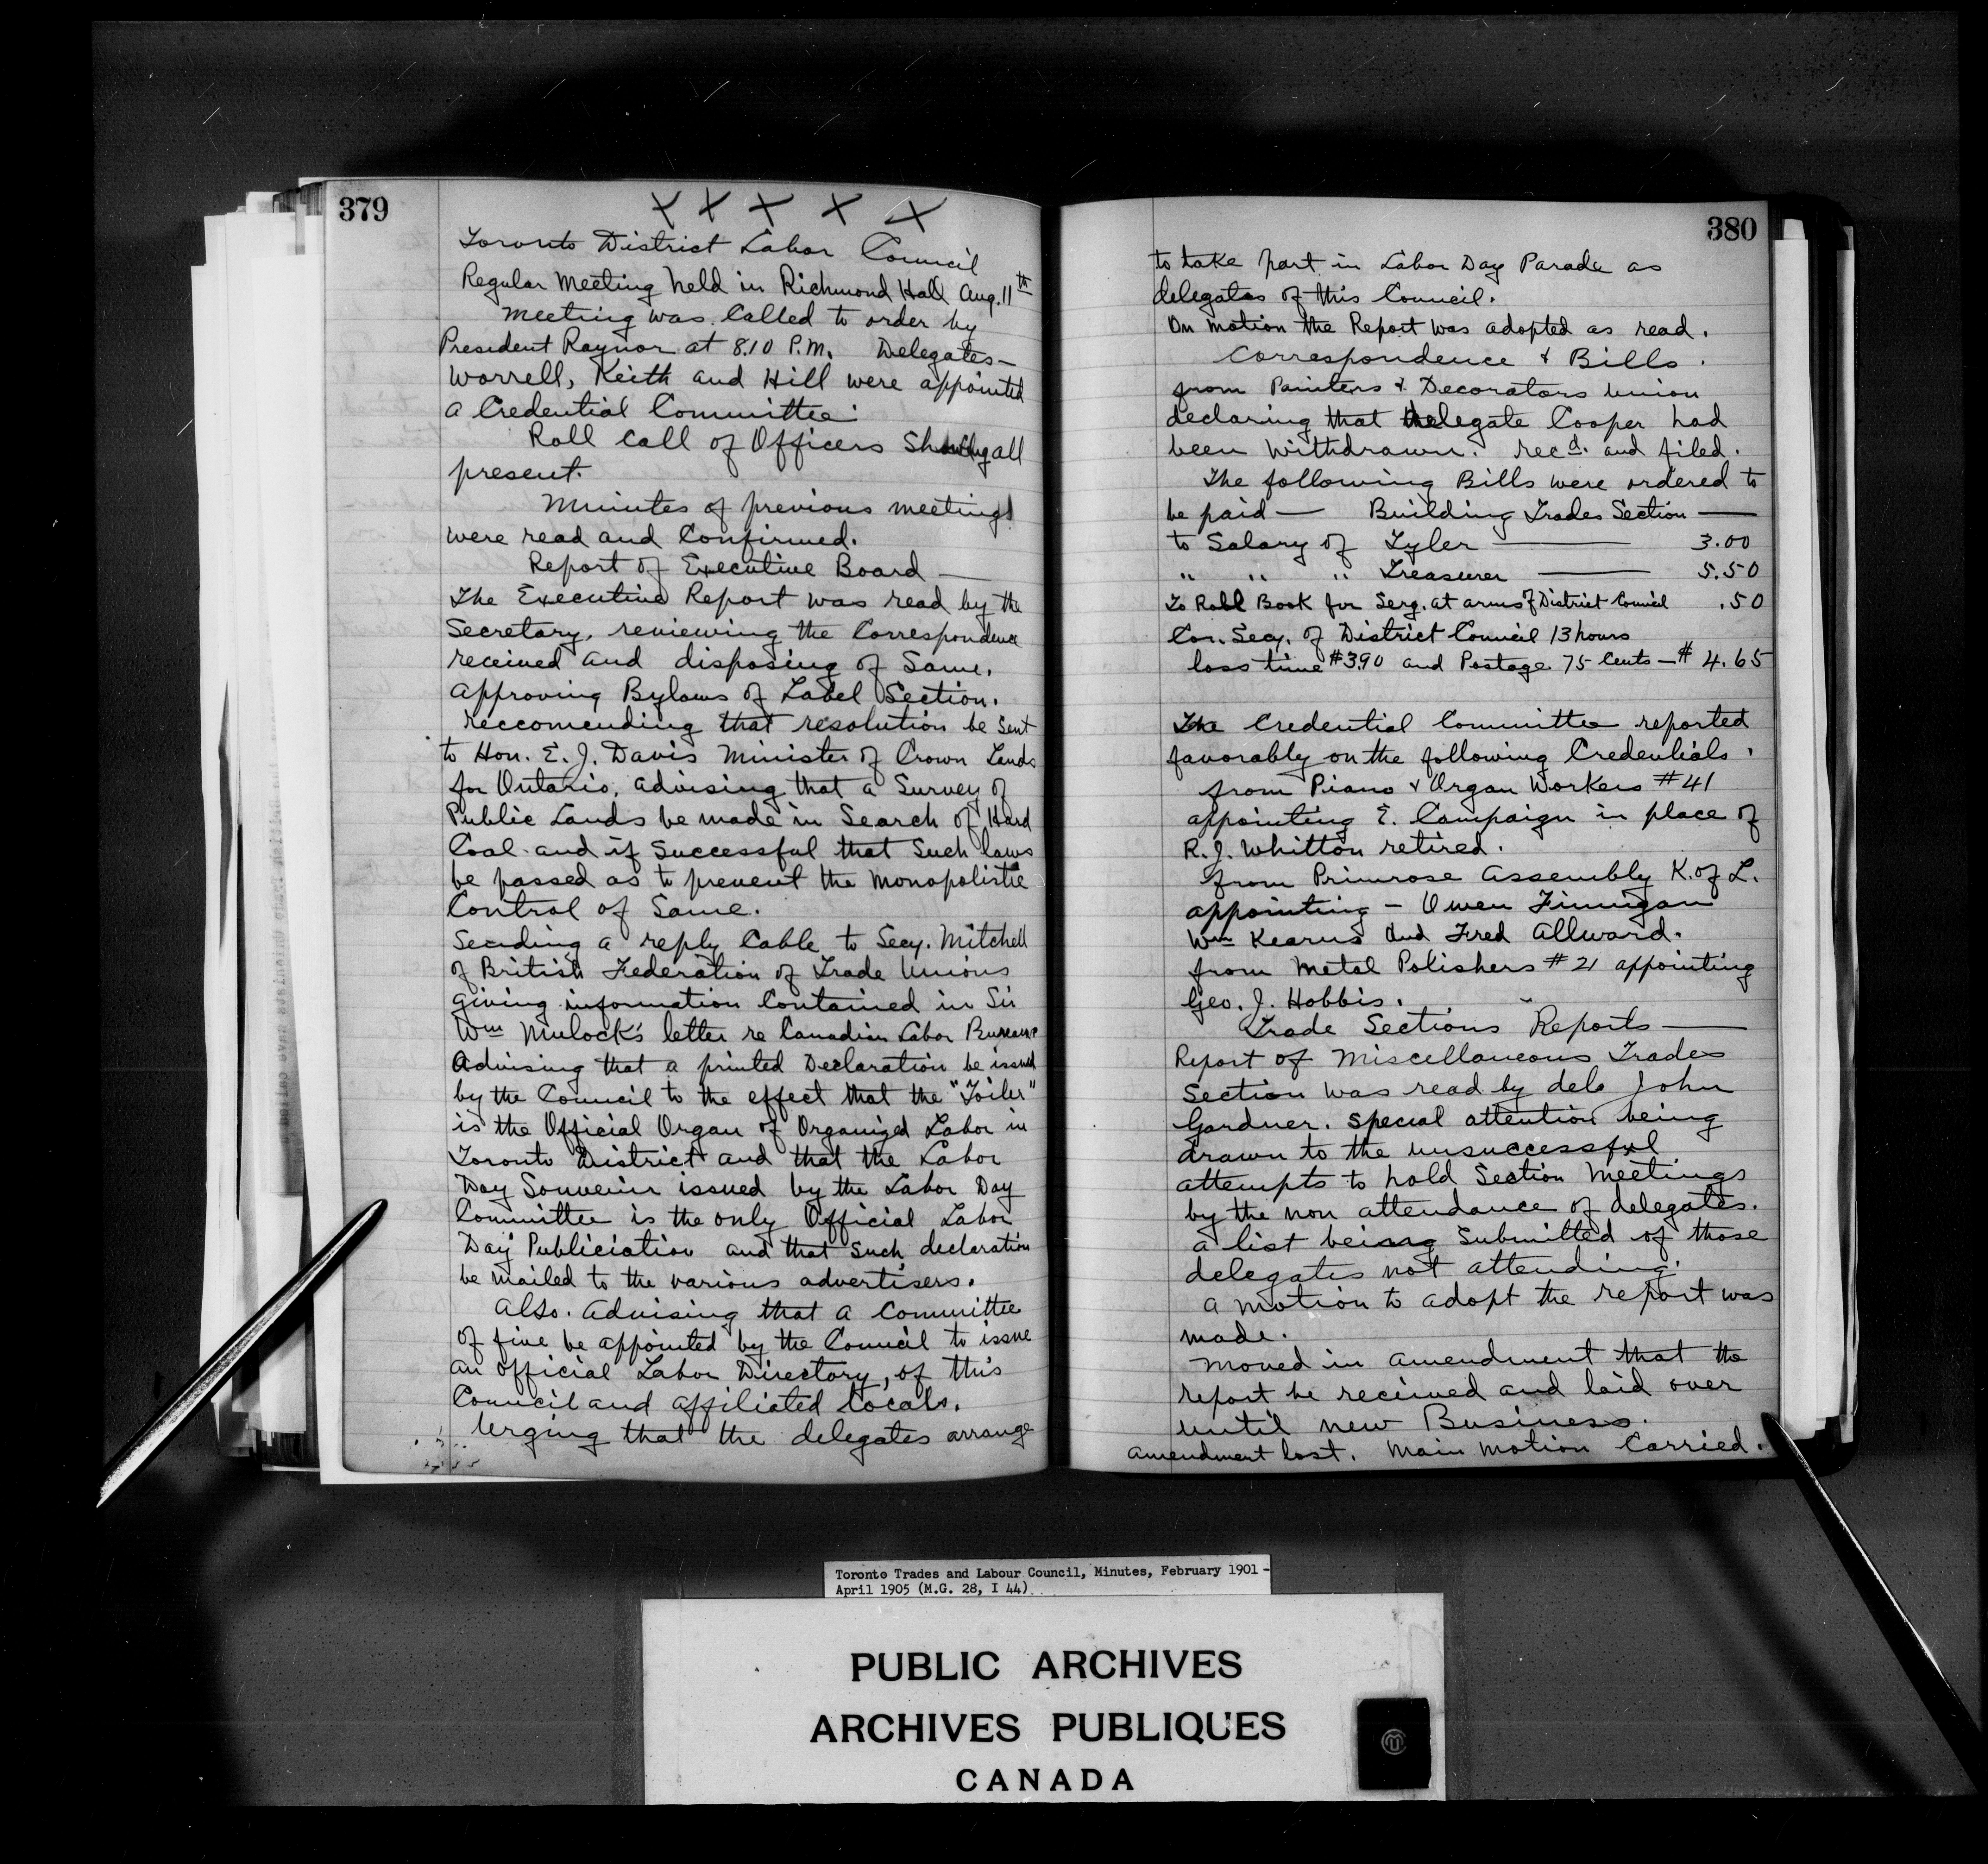 379
X X X X X
Toronto District Labor Council
Regular Meeting held in Richmond Hall Aug. 11th
Meeting was Called to order by
President Raynor at 8.10 P.M. Delegates—
Worrell, Keith and Hill were appointed
a Credential Committee.
Roll Call of Officers Showing all
present.
Minutes of previous meetings
were read and Confirmed.
Report of Executive Board —
The Executive Report was read by the
Secretary, reviewing the Correspondence
received and disposing of Same.
Approving Bylaws of Label Section.
reccomending that resolution be Sent
to Hon. E. J. Davis Minister of Crown Lands
for Ontario, advising that a Survey of
Public Lands be made in Search of Hard
Coal and if Successful that Such laws
be passed as to prevent the Monopolistic
Control of Same.
Sending a reply Cable to Secy. Mitchell
of British Federation of Trade Unions
giving information Contained in Sir
Wm Mulock's letter re Canadian Labor Bureau
Advising that a printed Declaration be issued
by the Council to the effect that the "Toiler"
is the Official Organ of Organized Labor in
Toronto District and that the Labor
Day Souvenir issued by the Labor Day
Committee is the only Official Labor
Day Publiciation and that Such declaration
be mailed to the various advertisers.
Also. Advising that a Committee
of five be appointed by the Council to issue
an official Labor Directory, of this
Council and affiliated locals.
Urging that the delegates arrange
380
to take part in Labor Day Parade as
delegates of this Council.
On motion the Report was adopted as read.
Correspondence & Bills.
from Painters & Decorators Union
declaring that delegate Cooper had
been Withdrawn. recd. and filed.
The following Bills were ordered to
be paid — Building Trades Section —
to Salary of Tyler — 3.00
" " " Treasurer — 5.50
To Roll Book for Serg. at arms of District Council .50
Cor. Secy. of District Council 13 hours
loss time $3.90 and Postage 75 Cents — $ 4.65
The Credential Committee reported
favorably on the following Credentials.
from Piano & Organ Workers #41
appointing E. Campaign in place of
R. J. Whitton retired.
from Primrose Assembly K. of L.
appointing — Owen Finnigan
Wm Kearns and Fred Allward.
from Metal Polishers #21 appointing
Geo. J. Hobbis.
Trade Sections Reports —
Report of Miscellaneous Trades
Section was read by dele John
Gardner. Special attention being
drawn to the unsuccessful
attempts to hold Section Meetings
by the non attendance of delegates.
a list being Submitted of those
delegates not attending.
a motion to adopt the report was
made.
Moved in amendment that the
report be received and laid over
until new Business.
amendment lost. Main motion Carried.
Toronto Trades and Labour Council, Minutes, February 1901 -
April 1905 (M.G. 28, I 44)
PUBLIC ARCHIVES
ARCHIVES PUBLIQUES
CANADA